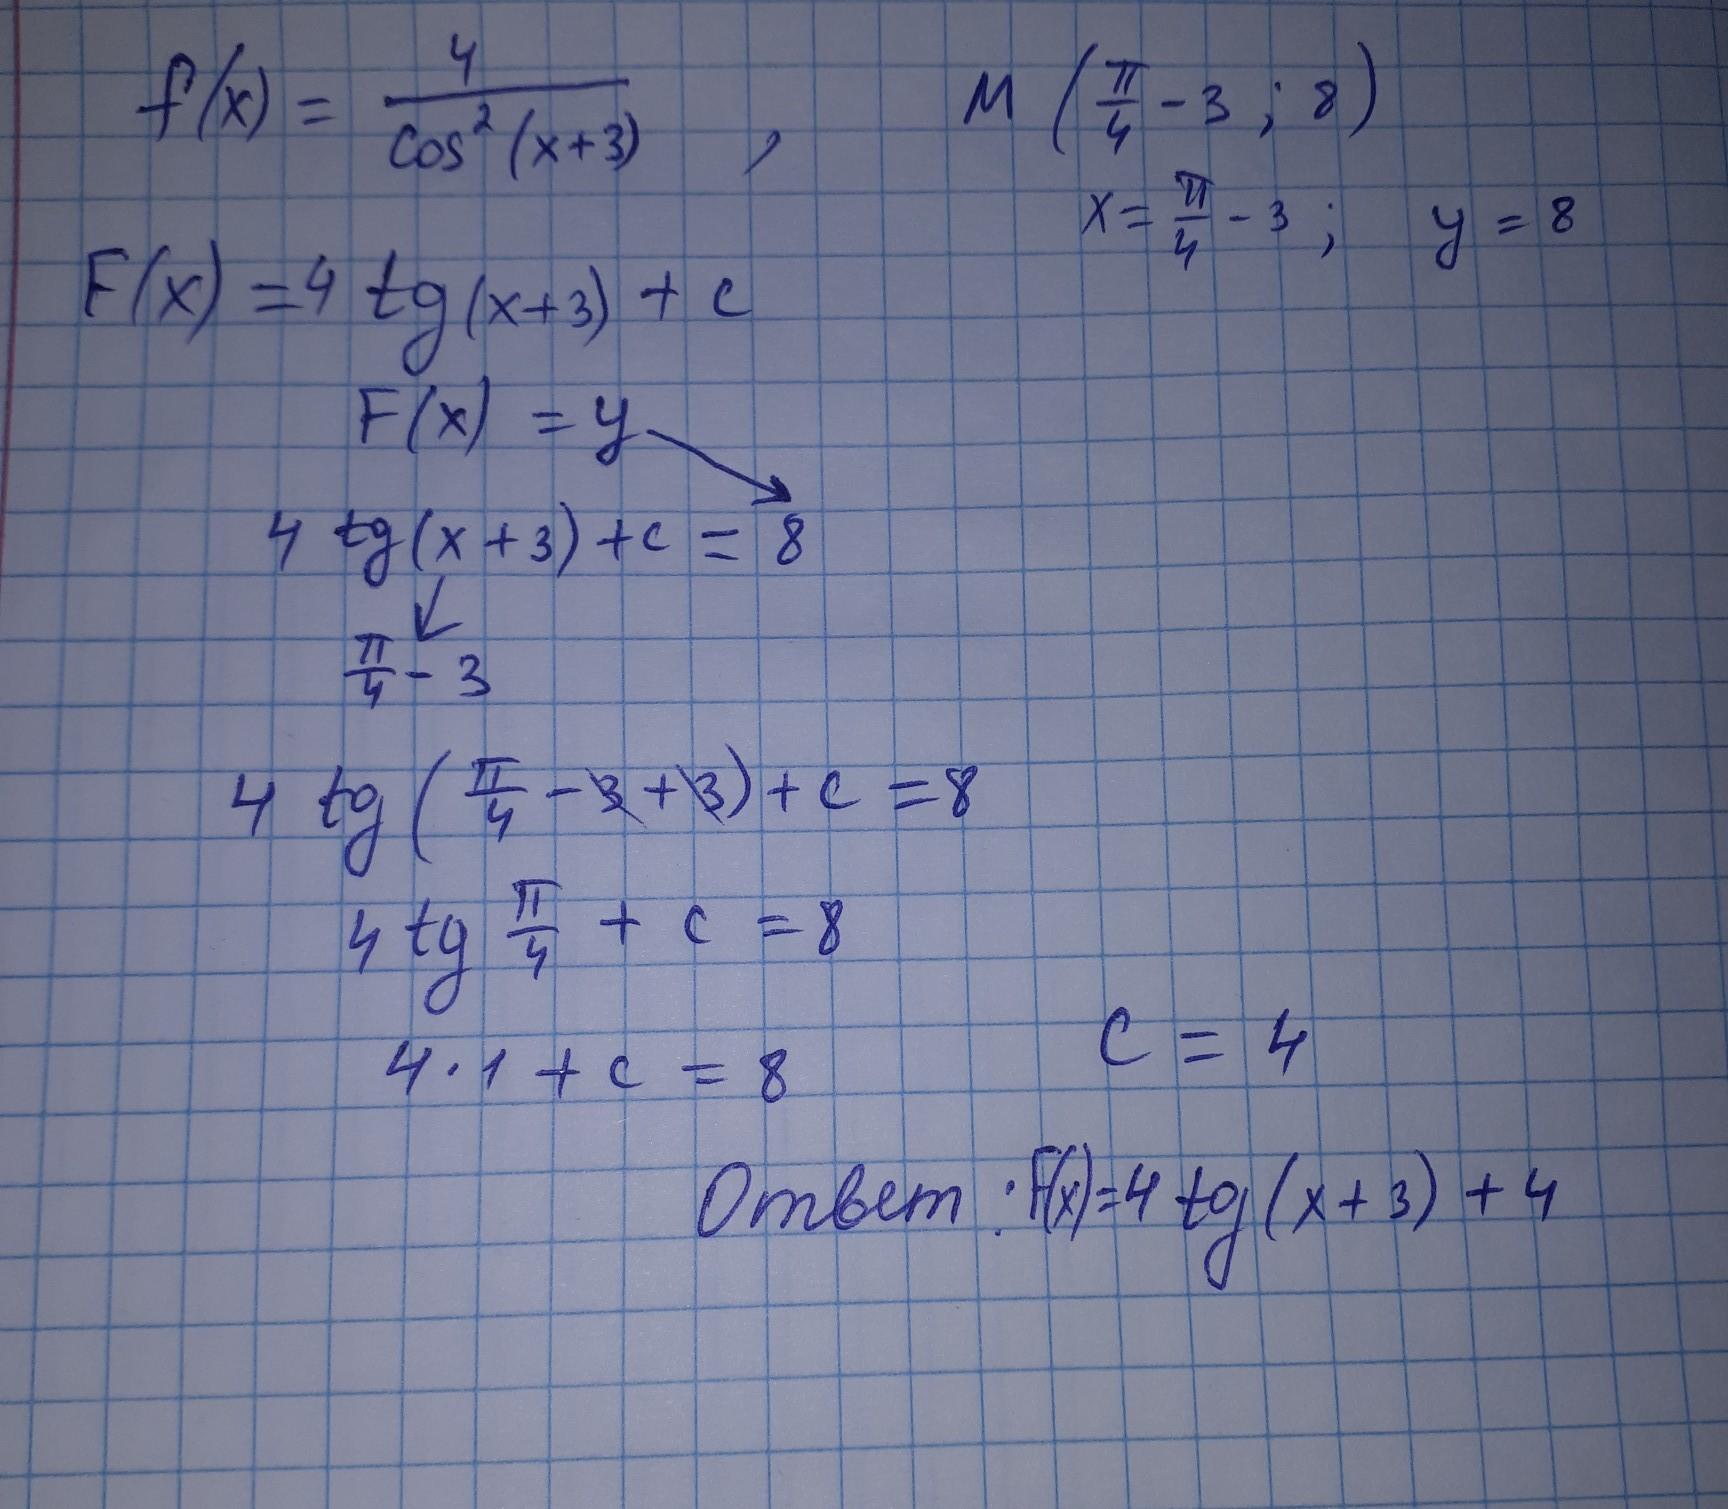 f(x) = 4/cos²(x+3) , M (π/4 - 3 ; 8)
x = π/4 - 3 ; y = 8
F(x) = 4 tg(x+3) + c
F(x) = y
4 tg(x+3) + c = 8
π/4 - 3
4 tg(π/4 - 3 + 3) + c = 8
4 tg π/4 + c = 8
4·1 + c = 8
C = 4
Ответ : F(x)=4 tg(x+3) + 4